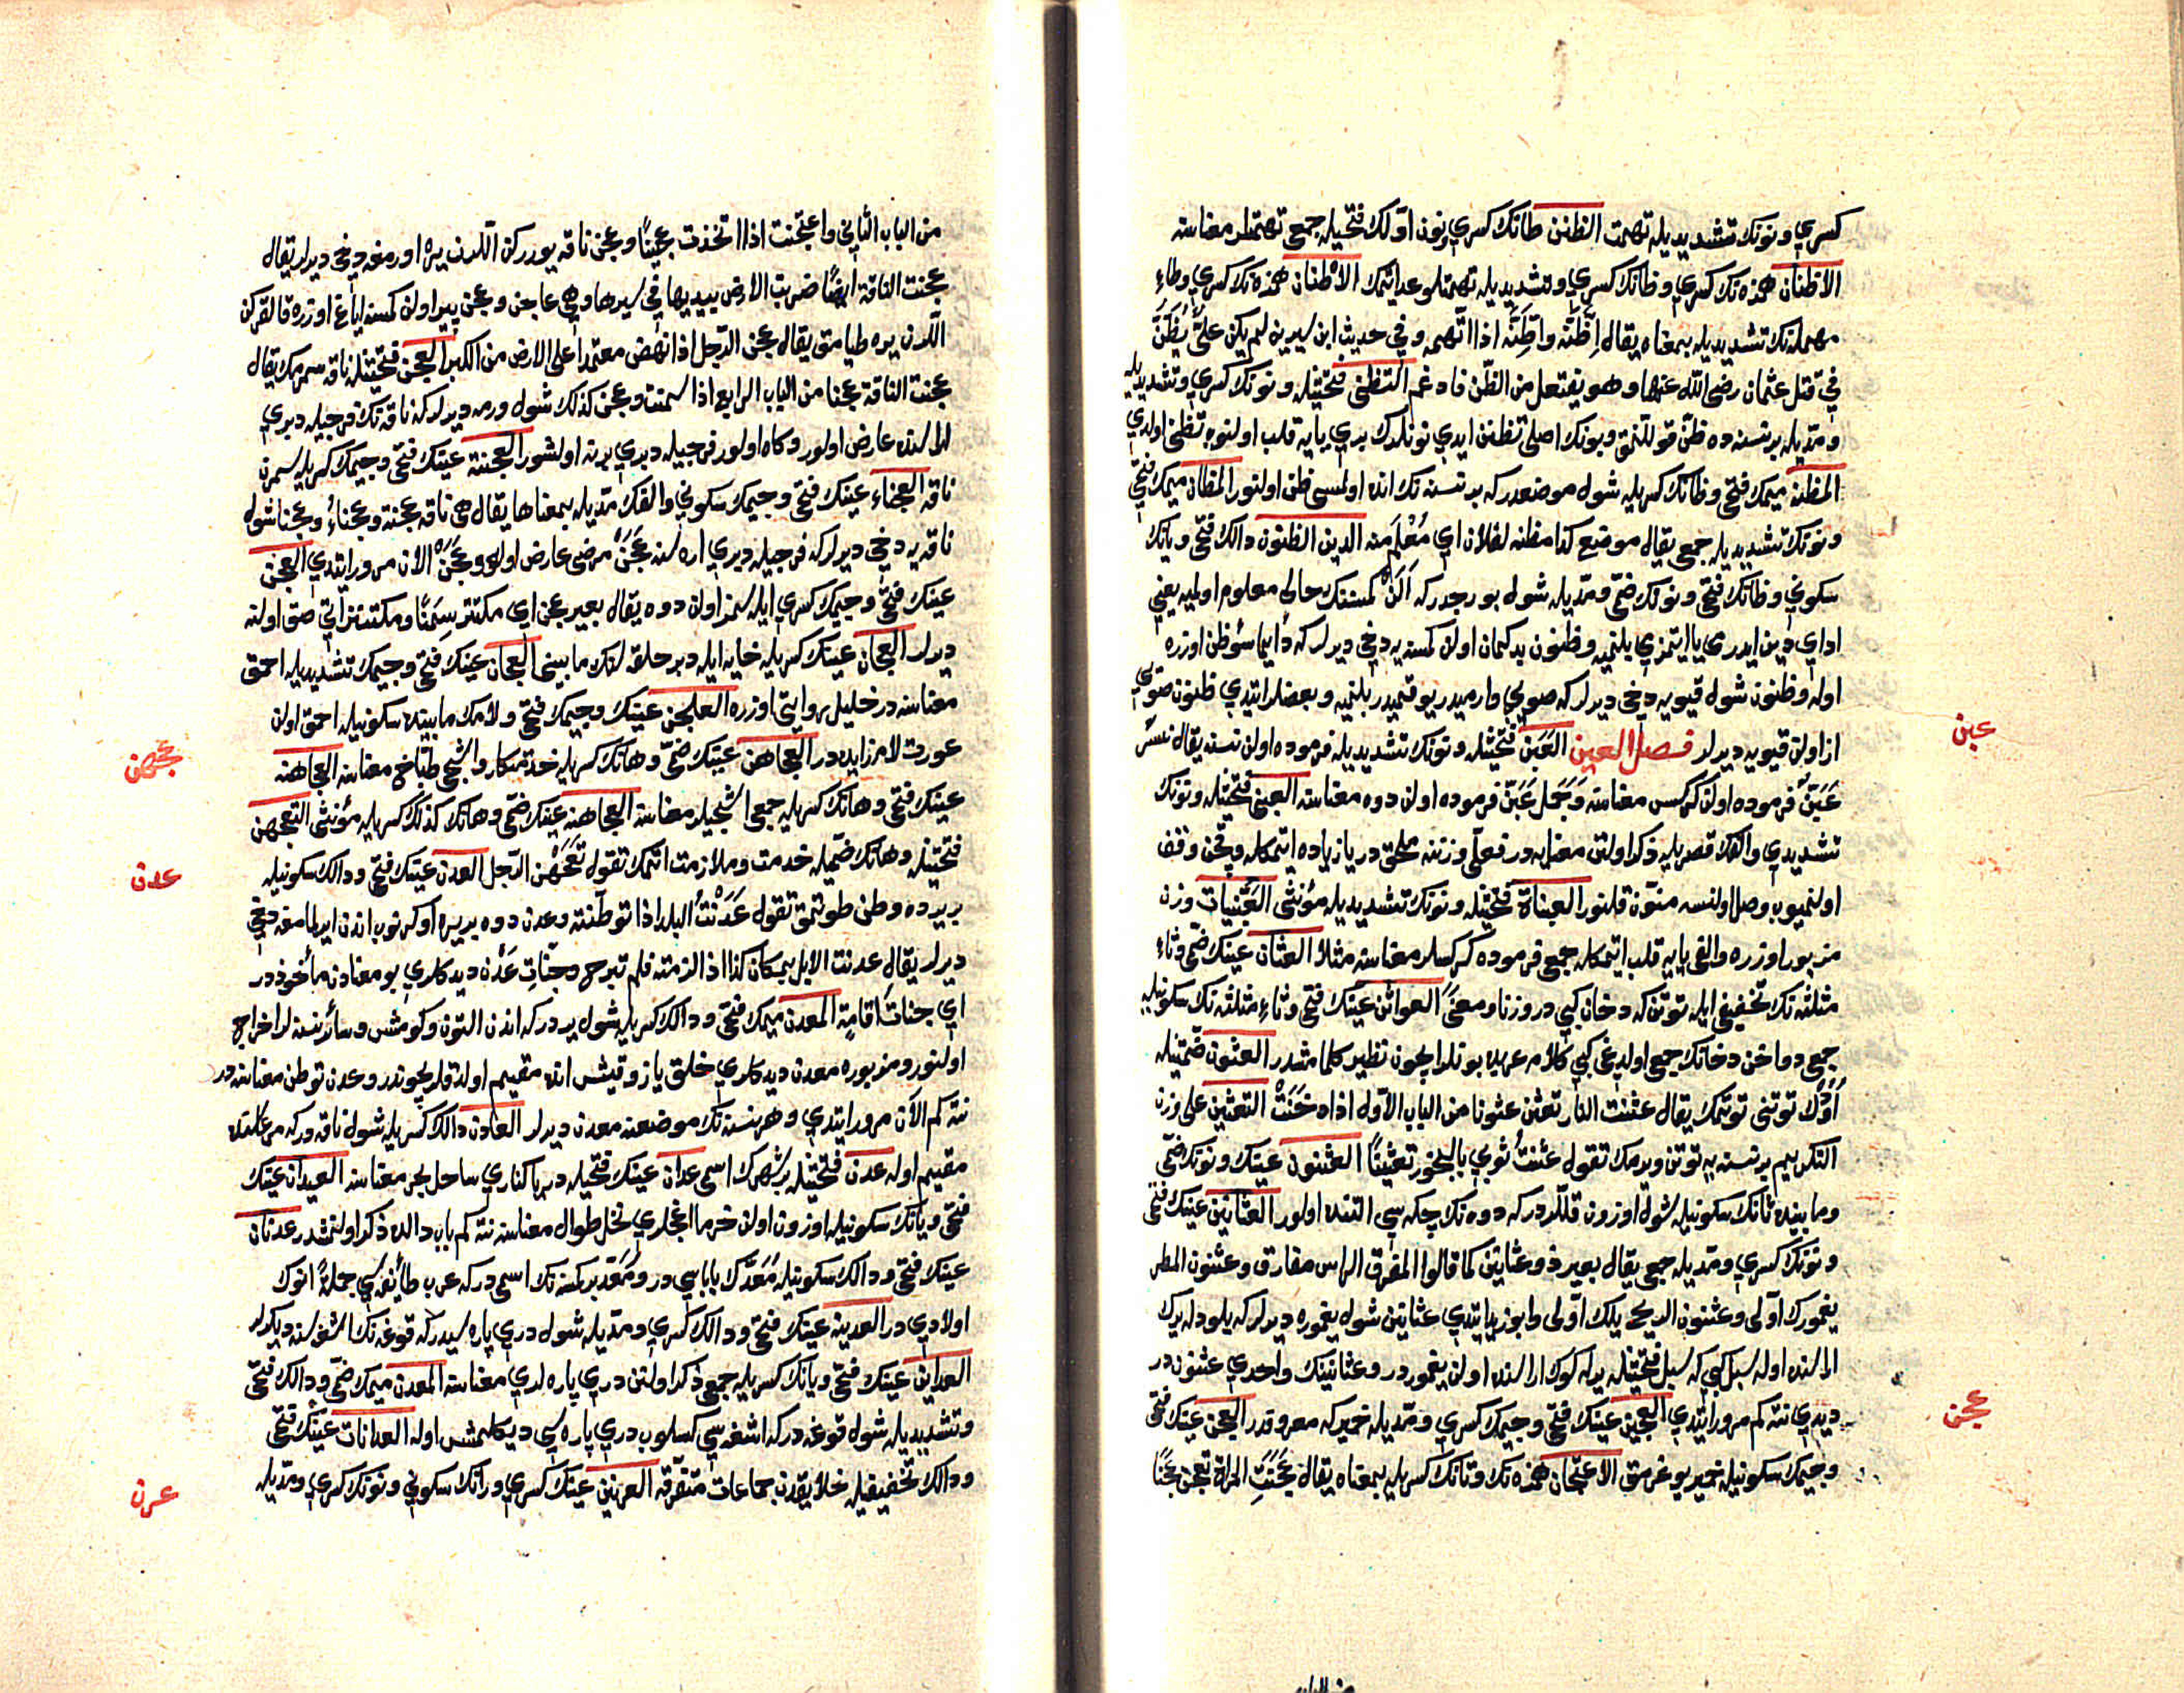 كسري و نونك تشديديله تهمت الظنن ظانك كسري و نون اوّلك فتحيله جمع تهمتلر معناسنه
الاظنان همزه نك كسري و ظانك كسري و تشديديله تهمتلو عد ايتمك الاطنان همزه نك كسري و طاء
مهمله نك تشديديله بمعناه يقال اِظَّنَّه واطَّنَّه اذا اتّهمه و في حديث ابن سيرين لم يكن علىٌّ يُظَّنُّ
في قتل عثمان رضى الله عنهما و هو يفتعل من الظّن فادغم التظنى فتحتيله و نونك كسري و تشديديله
و مدّيله بر نسنه ده ظنّ قوللنمق و بونك اصلى تظنن ايدي نونلرك بري يايه قلب اولنوب تظنى اولدي
المظنه ميمك فتحى و ظانك كسريله شول موضعدر كه بر نسنه نك انده اولمسى ظن اولنور المظان ميمك فتحى
و نونك تشديديله جمع يقال موضع كذا مظنه لفلان اي مُعْلَم منه الدين الظنون دالك فتحى و يانك
سكوني و ظانك فتحى و نونك ضمّى و مدّيله شول بورجدر كه الَن كمسنك حالى معلوم اولميه يعني
اداي دين ايدرمى يا ايتمزمي بلنميه و ظنون بدكمان اولن كمسه يه دخى ديرلر كه دايما سؤظن اوزره
اوله و ظنون شول قيويه دخى ديرلر كه صويي وارميدر يوقميدر بلنميه و بعضلر ايتدي ظنون صويي
از اولن قيويه ديرلر فصل العين العَبَنّ فتحتيله و نونك تشديديله فرموده اولن نسنه يقال نسر
عَبَنّ فرموده اولن كركس معناسنه و جَمَل عَبَنّ فرموده اولن دوه معناسنه العبنى فتحتيله و نونك
تشديدي و الفك قصريله ذكر اولنن معنايه در فعلّى وزننه ملحق در يا زياده ايتمكله وقچن وقف
اولنميوب وصل اولنسه منوّن قلنور العبناة فتحتيله و نونك تشديديله مؤنثى العَبَنَّيات وزن
مزبور اوزره و الفى يايه قلب ايتمكله جمع فرموده كركسلر معناسنه مثلا العثان عينك ضمّى و ثاء
مثلثه نك تخفيفى ايله توتن كه دخان كبي در وزنا و معنًى العواثن عينك فتحى و ثاء مثلثه نك سكونيله
جمع دواخن دخانك جمع اولدغى كبي كلام عربده بونلر ايچون نظير كلمامشدر العثون ضمّتيله
اَوْك توتنى توتمك يقال عثنت النار تعثن عثونا من الباب الاوّل اذا دخّنَتْ التعثين على وزن
التكريم بر نسنه يه توتن ويرمك تقول عثنتُ ثوبي بالبخور تعثينًا العثنون عينك و نونك ضمّى
و مابينده ثانك سكونيله شول اوزون قللردر كه دوه نك چكه سي التنده اولور العثانين عينك فتحى
و نونك كسري و مدّيله جمع يقال بعير ذو عثانين كما قالوا المفرق الراس مفارق و عثنون المطر
يغمورك اوّلى و عثنون الريح يلك اوّلى و ابو زيد ايتدي عثانين شول يغموره ديرلر كه بلودله يرك
ارا لنده اوله سبل كبي كه سبل فتحتيله يرله كوك ارا لنده اولن يغموردر و عثانينك واحدي عثنون در
ديدي نته كم مرور ايتدي العجين عينك فتحى و جيمك كسري و مدّيله خمير كه معروفدر العجن عينك فتحى
و جيمك سكونيله خمير يوغرمق الاعتجان همزه نك و تانك كسريله بمعناه يقال عَجَنَتِ المراة تعجن عَجْنًا
عبن
عجن
من الباب الثاني و اعتجنت اذا اتخذت عجينًا و عجن ناقه يورركن اللرن يره اورمغه دخى ديرلر يقال
عجنت الناقة ايضًا ضربت الارض بيديها في سيرها و هى عاجن و عجن پير اولن كمسنه اياغ اوزره قالقركن
اللرن يره طيامق يقال عجن الرّجل اذا نهض معتمدا على الارض من الكبر العجن فتحتيله ناقه سمرمك يقال
عجنت الناقة عجنا من الباب الرابع اذا سمنت و عجن كذلك شول ورمه ديرلر كه ناقه نك فرجيله دبري
ارا لنده عارض اولور و كاه اولور فرجيله دبري برنه اولشور العجنة عينك فتحى و جيمك كسريله سمرن
ناقه العجناء عينك فتحى و جيمك سكوني و الفك مدّيله بمعناها يقال هى ناقه عجنة و عجناءُ و عجنا شول
ناقه يه دخى ديرلر كه فرجيله دبري اره لنده عَجَنْ مرضى عارض اوله و عَجَنْ الان مرور ايتدي العجن
عينك فتحى و جيمك كسري ايله سمز اولن دوه يقال بعير عجن اي مكتنز سِمَنًا و مكتنز اتي صق اولنه
ديرلر العجان عينك كسريله خايه ايله دبر حلقه لرنك مابينى العجان عينك فتحى و جيمك تشديديله احمق
معناسنه در خليل روايتي اوزره العلجن عينك و جيمك فتحى و لامك مابينده سكونيله احمق اولن
عورت لام زايده در العجاهن عينك ضمّى و هانك كسريله خدمتكار و اشجى طبّاخ معناسنه العجاهنه
عينك فتحى و هانك كسريله جمع اشجيلر معناسنه العجاهنه عينك ضمّى و هانك كذلك كسريله مؤنثى التعجهن
فتحتيله و هانك ضمّيله خدمت و ملازمت اتمك تقول تعَجْهَن الرّجل العدن عينك فتحى و دالك سكونيله
بر يرده وطن طوتمق تقول عَدَنْتُ البلد اذا توطنته و عدن دوه بر يره اوكرنوب اندن ايرلمامغه دخى
ديرلر يقال عدنت الابل بمكان كذا اذا لزمته فلم تبرح و جنّات عَدْن ديدكلري بو معنادن مأخوذدر
اي جنات اقامة المعدن ميمك فتحى و دالك كسريله شول يردر كه اندن التون و كومش و سائر نسنه لر اخراج
اولنور و مزبوره معدن ديدكلري خلق ياز و قيش انده مقيم اولدقلريچوندر و عدن توطن معناسنه در
نته كم الان مرور ايتدي و هر نسنه نك موضعنه معدن ديرلر العادن دالك كسريله شول ناقه در كه مرعاسنده
مقيم اوله عدن فتحتيله بر شهرك اسمى عدان عينك فتحيله دريا كناري ساحل بحر معناسنه العيدان عينك
فتحى و يانك سكونيله اوزون اولن خرما اغجلري نخل طوال معناسنه نته كم باب دالده ذكر اولنمشدر عدنان
عينك فتحى و دالك سكونيله مَعَدّك باباسي در و مَعَدّ بر كمسنه نك اسمى در كه عرب طائفه سي جملةً انوك
اولادي در العدينه عينك فتحى و دالك كسري و مدّيله شول دري پاره سيدر كه قوغه نك اشغه سنه ديكرلر
العداين عينك فتحى و يانك كسريله جمع ذكر اولنن دري پاره لري معناسنه المعدن ميمك ضمّى و دالك فتحى
و تشديديله شول قوغه در كه اشغه سي كسلوب دري پاره سي ديكلمش اوله العدانات عينك فتحى
و دالك تخفيفيله خلايقدن جماعات متفرّقه العرنين عينك كسري و رانك سكوني و نونك كسري و مدّيله
عجهن
عدن
عرن